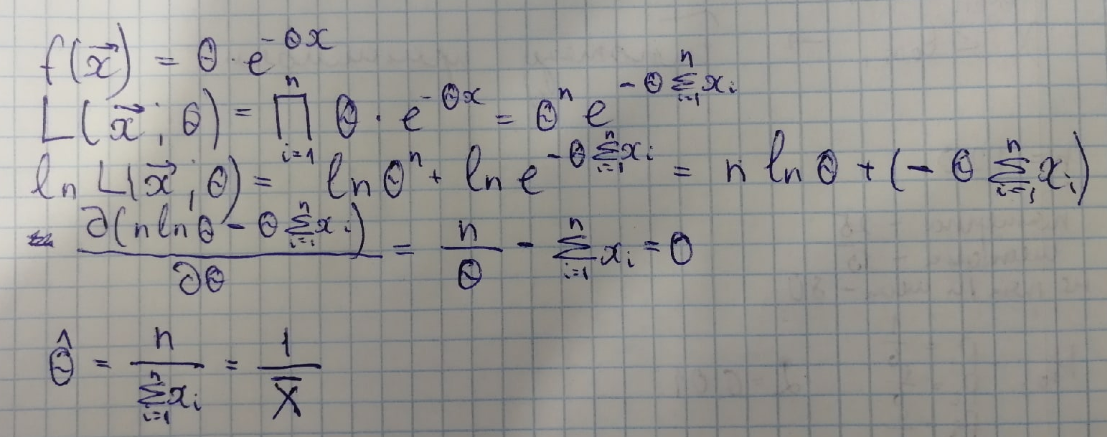 f(x⃗) = θ · e^{-θx}
L(x⃗; θ) = ∏_{i=1}^{n} θ · e^{-θx} = θ^n e^{-θ∑_{i=1}^{n} x_i}
ln L(x⃗; θ) = ln θ^n + ln e^{-θ∑_{i=1}^{n} x_i} = n ln θ + (-θ ∑_{i=1}^{n} x_i)
∂(n ln θ - θ ∑_{i=1}^{n} x_i) / ∂θ = n/θ - ∑_{i=1}^{n} x_i = 0
θ̂ = n / ∑_{i=1}^{n} x_i = 1 / X̄